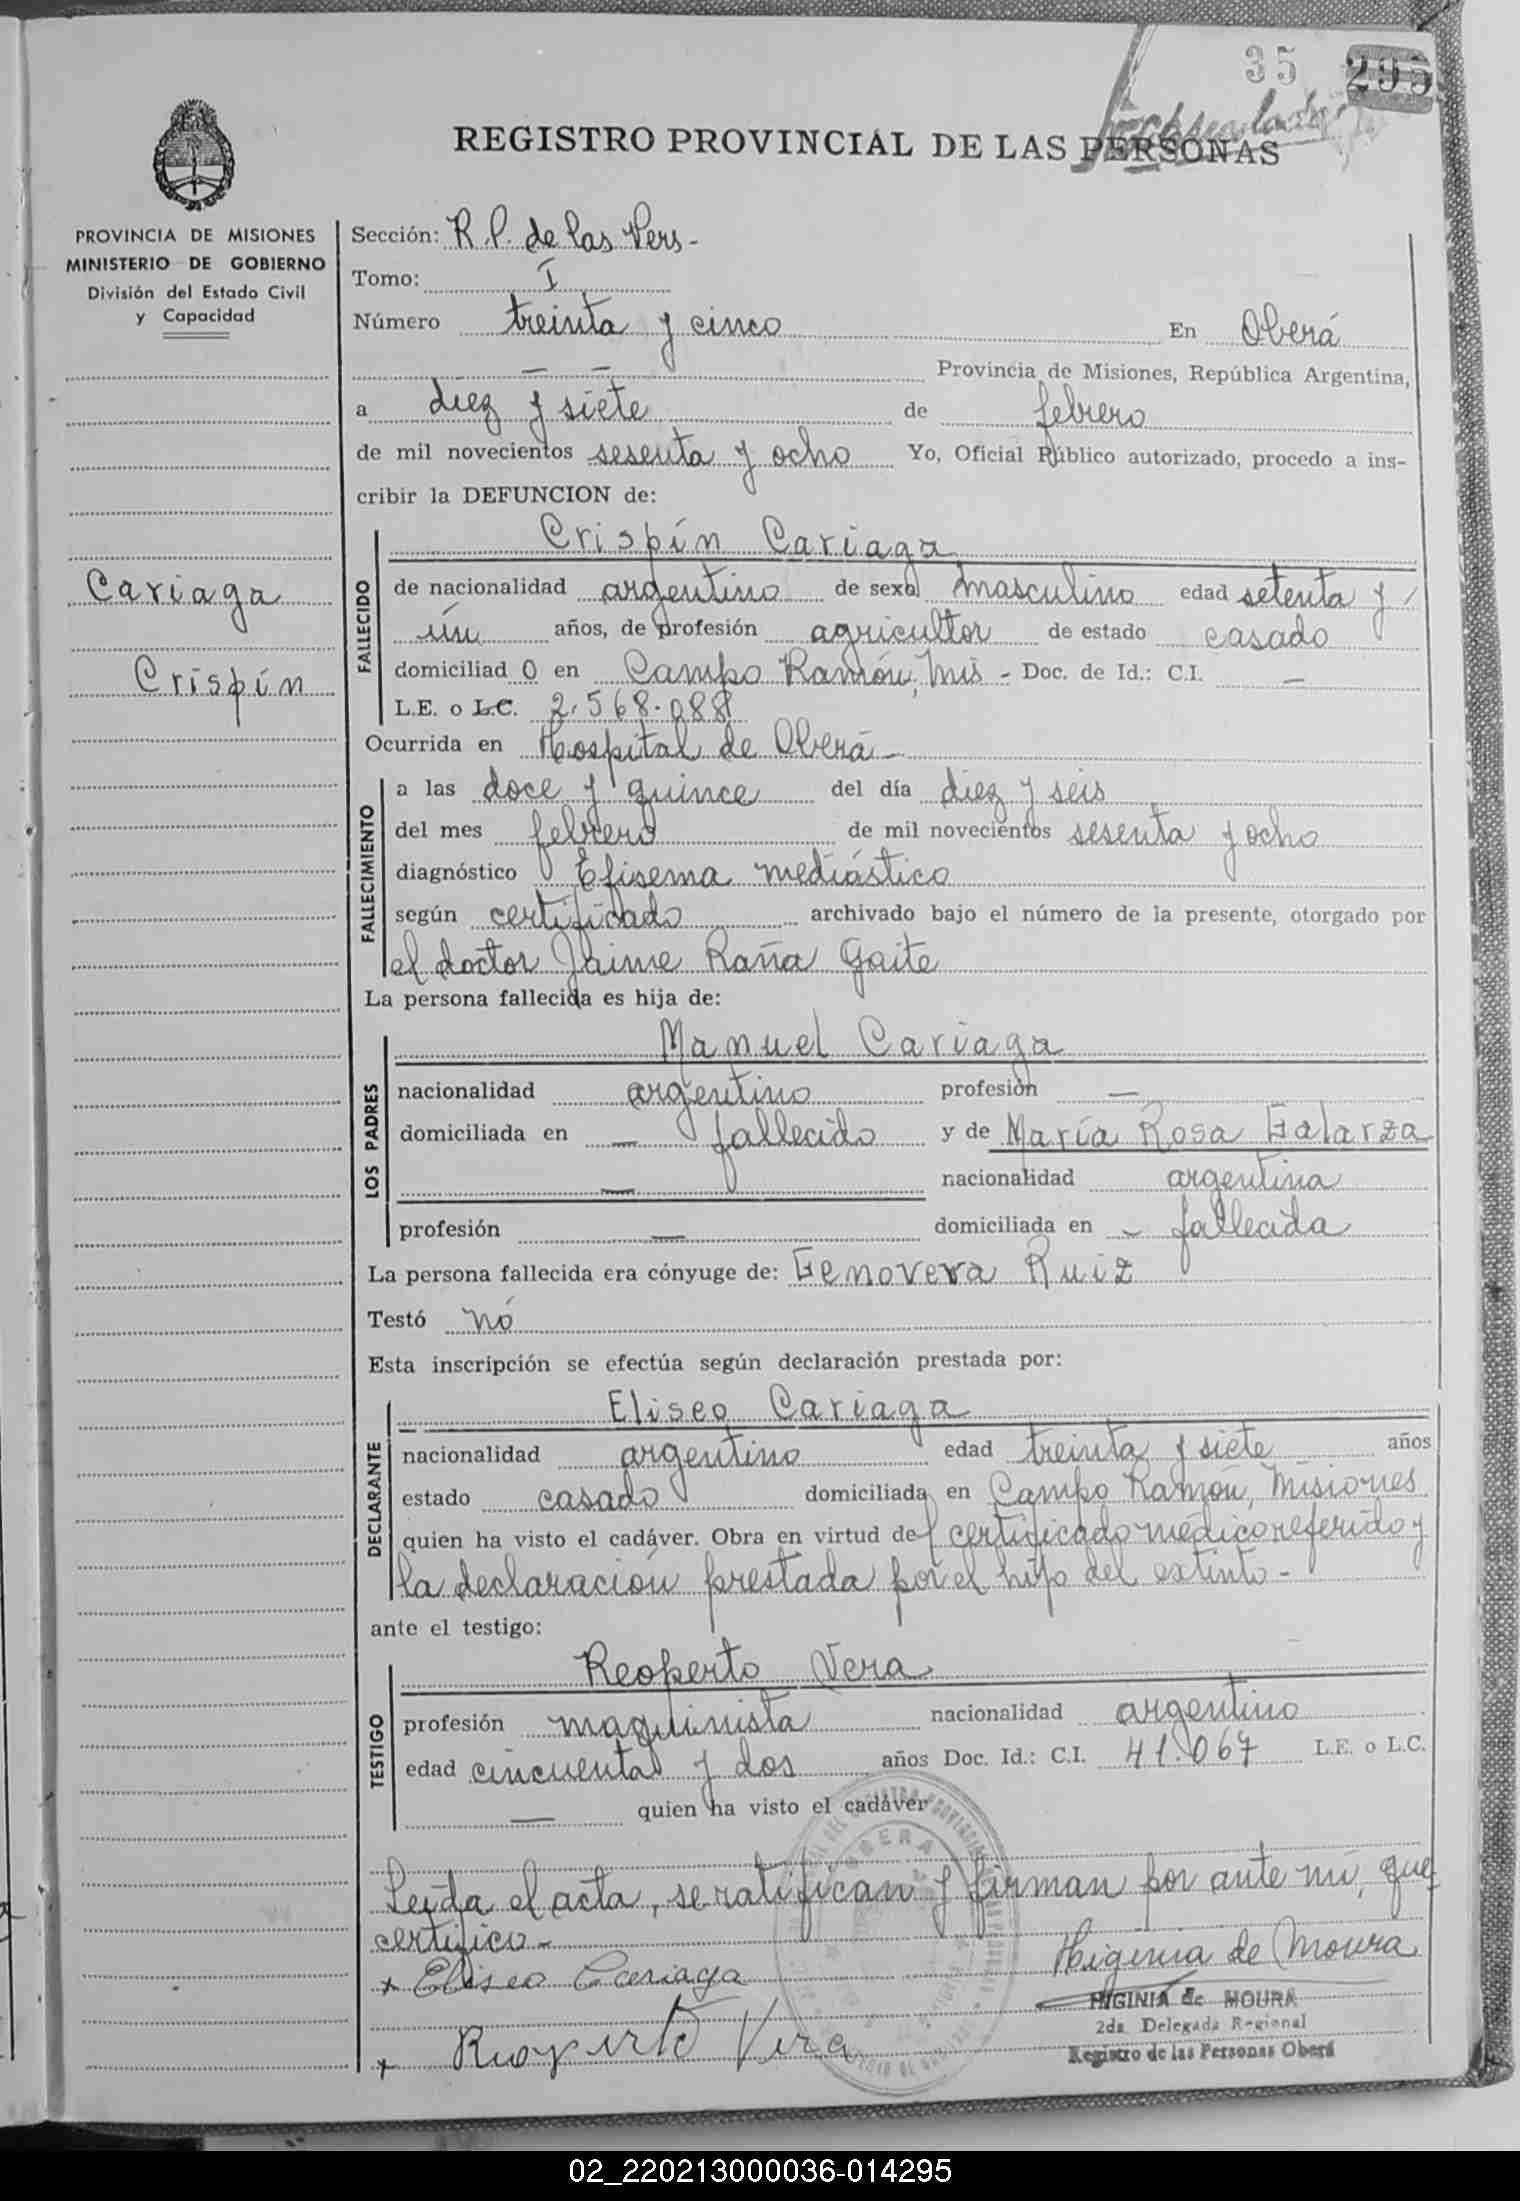 35 295
REGISTRO PROVINCIAL DE LAS PERSONAS
PROVINCIA DE MISIONES
MINISTERIO DE GOBIERNO
División del Estado Civil
y Capacidad
Cariaga
Crispín
Sección: R.P. de las Pers-
Tomo: I
Número treinta y cinco En Oberá
— — Provincia de Misiones, República Argentina,
a diez y siete de febrero
de mil novecientos sesenta y ocho Yo, Oficial Público autorizado, procedo a ins-
cribir la DEFUNCION de:
FALLECIDO
Crispín Cariaga
de nacionalidad argentino de sexo masculino edad setenta y
ún años, de profesión agricultor de estado casado
domiciliad o en Campo Ramón, Mis - Doc. de Id.: C.I. —
L.E. o L.C. 2.568.088
Ocurrida en Hospital de Oberá-
FALLECIMIENTO
a las doce y quince del día diez y seis
del mes febrero de mil novecientos sesenta y ocho
diagnóstico Efisema mediástico
según certificado archivado bajo el número de la presente, otorgado por
el doctor Jaime Raña Gaite
La persona fallecida es hija de:
LOS PADRES
Manuel Cariaga
nacionalidad argentino profesión —
domiciliada en — fallecido y de María Rosa Galarza
— nacionalidad argentina
profesión — domiciliada en - fallecida
La persona fallecida era cónyuge de: Genovera Ruiz
Testó nó
Esta inscripción se efectúa según declaración prestada por:
DECLARANTE
Eliseo Cariaga
nacionalidad argentino edad treinta y siete años
estado casado domiciliada en Campo Ramón, Misiones
quien ha visto el cadáver. Obra en virtud del certificado médico referido y
la declaración prestada por el hijo del extinto-
ante el testigo:
TESTIGO
Reoperto Vera
profesión maquinista nacionalidad argentino
edad cincuenta y dos años Doc. Id.: C.I. 41.067 L.E. o L.C.
— quien ha visto el cadáver
Leída el acta, se ratifican y firman por ante mí, que
certifico-
x Eliseo Cariaga Higinia de Moura
HIGINIA de MOURA
2da Delegada Regional
Registro de las Personas Oberá
x Rioperto Vera
02_220213000036-014295